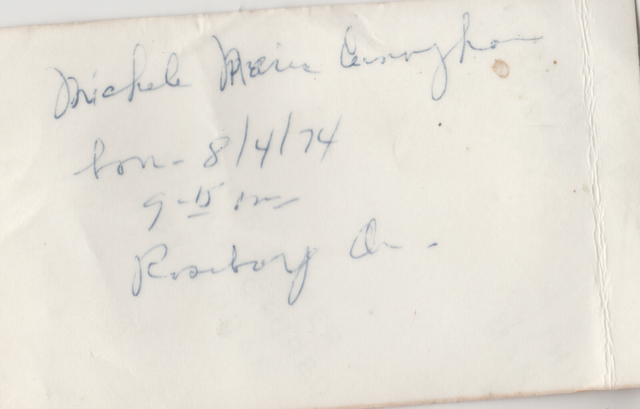 Michele Marie Cunningham
born - 8/4/74
9-15 am
Roseborg Or.